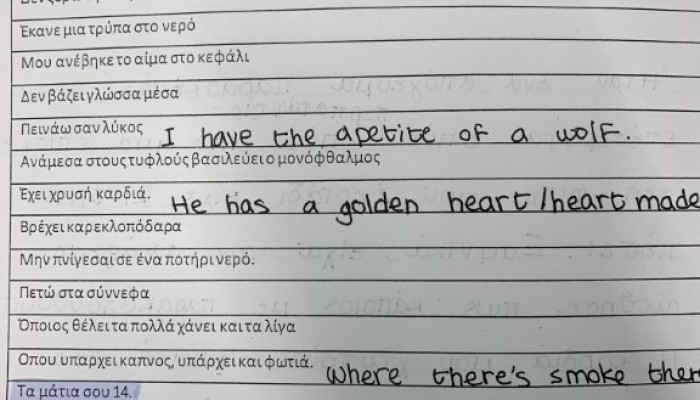 Έκανε μια τρύπα στο νερό
Μου ανέβηκε το αίμα στο κεφάλι
Δεν βάζει γλώσσα μέσα
Πεινάω σαν λύκος I have the apetite of a wolf.
Ανάμεσα στους τυφλούς βασιλεύει ο μονόφθαλμος
Έχει χρυσή καρδιά. He has a golden heart/heart made
Βρέχει καρεκλοπόδαρα
Μην πνίγεσαι σε ένα ποτήρι νερό.
Πετώ στα σύννεφα
Όποιος θέλει τα πολλά χάνει και τα λίγα
Οπου υπαρχει καπνος, υπάρχει και φωτιά. Where there's smoke ther
Τα μάτια σου 14.